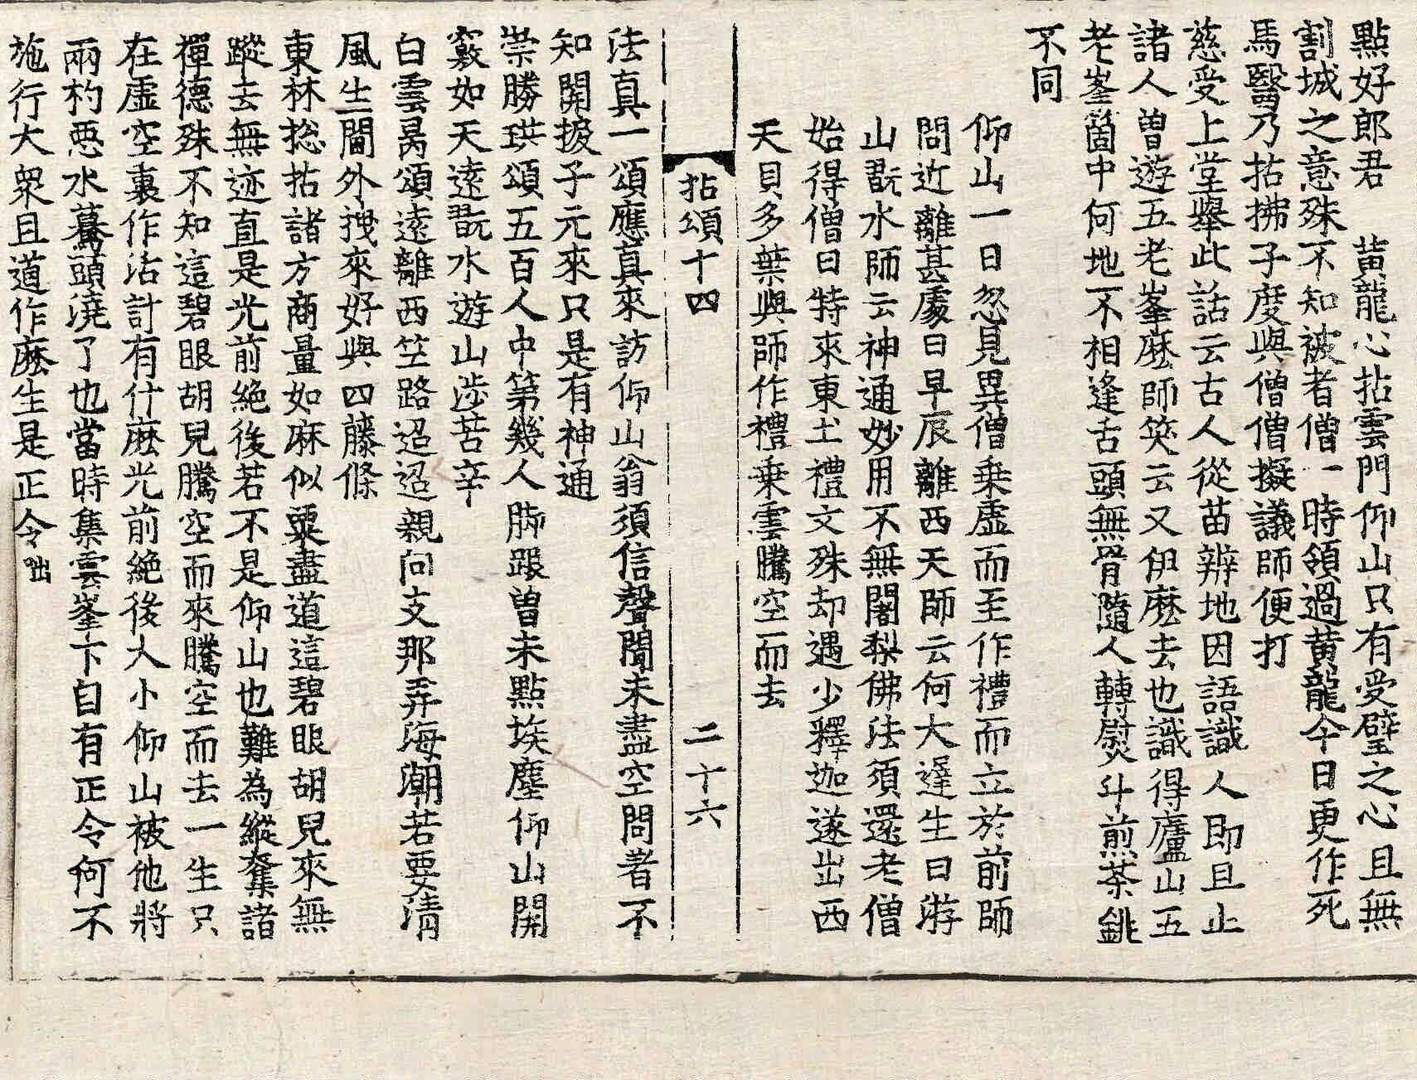 點好郎君　黃龍心拈雲門仰山只有受璧之心且無
割城之意殊不知被者僧一時領過黃龍今日更作死
馬醫乃拈拂子度與僧僧擬議師便打
慈受上堂舉此話云古人從苗辨地因語識人即且止
諸人曾遊五老峯麽師笑云又伊麽去也識得廬山五
老峯箇中何地不相逢舌頭無骨隨人轉熨斗煎茶銚
不同
仰山一日忽見異僧乘虛而至作禮而立於前師
問近離甚處曰早辰離西天師云何大遲生曰游
山翫水師云神通妙用不無闍梨佛法須還老僧
始得僧曰特來東土禮文殊却遇少釋迦遂出西
天貝多葉與師作禮乗雲騰空而去
拈頌十四　二十六
法真一頌應真來訪仰山翁須信聲聞未盡空問著不
知開掜子元來只是有神通
崇勝珙頌五百人中第幾人脚跟曽未點埃塵仰山開
竅如天遠翫水遊山涉苦辛
白雲昺頌遠離西竺路迢迢親向支那弄海潮若要清
風生閫外拽來好與四藤條
東林捴拈諸方商量如麻似粟盡道這碧眼胡兒來無
蹤去無迹直是光前絶後若不是仰山也難為縱奪諸
禪德殊不知這碧眼胡兒騰空而來騰空而去一生只
在虛空裏作活計有什麽光前絶後大小仰山被他將
兩杓惡水驀頭澆了也當時集雲峯下自有正令何不
施行大衆且道作麽生是正令咄